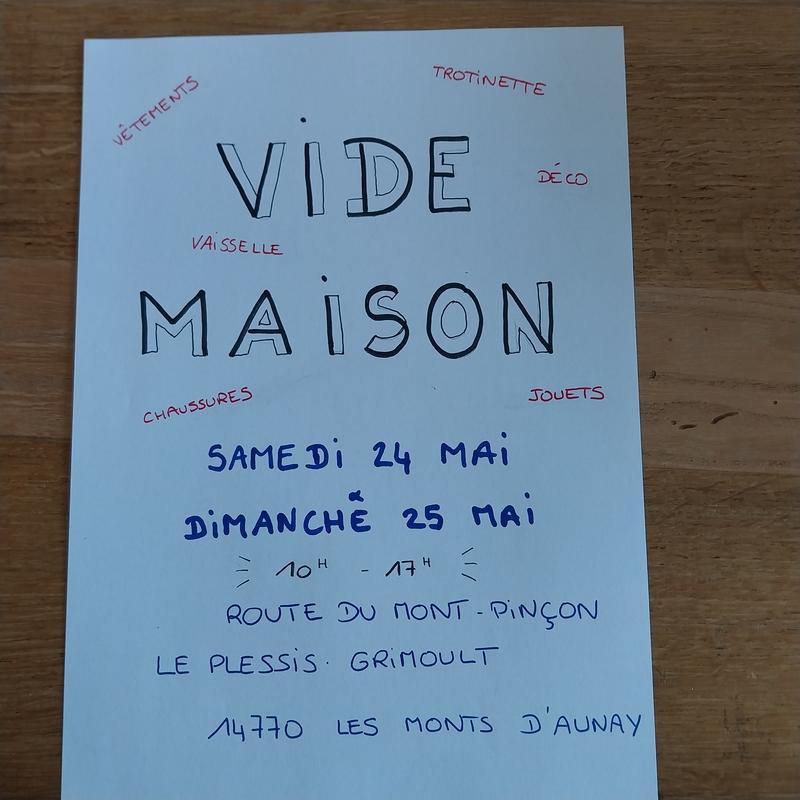 VÊTEMENTS
TROTiNETTE
ViDE
DÉCO
VAiSSELLE
MAiSON
CHAUSSURES
JOUETS
SAMEDi 24 MAi
DiMANCHE 25 MAi
10H - 17H
ROUTE DU MONT-PiNÇON
LE PLESSiS-GRiMOULT
14770 LES MONTS D'AUNAY